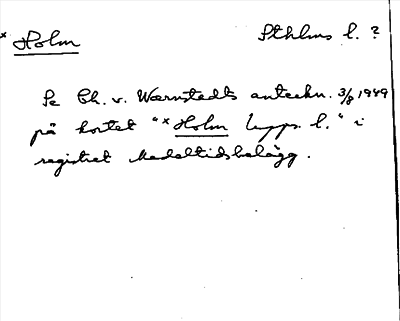 * Holm Sthlms l. ?
Se Ch. v. Wærnstedts anteckn. 3/8 1949
på kortet "* Holm Upps. l." i
registret Medeltidsbelägg.